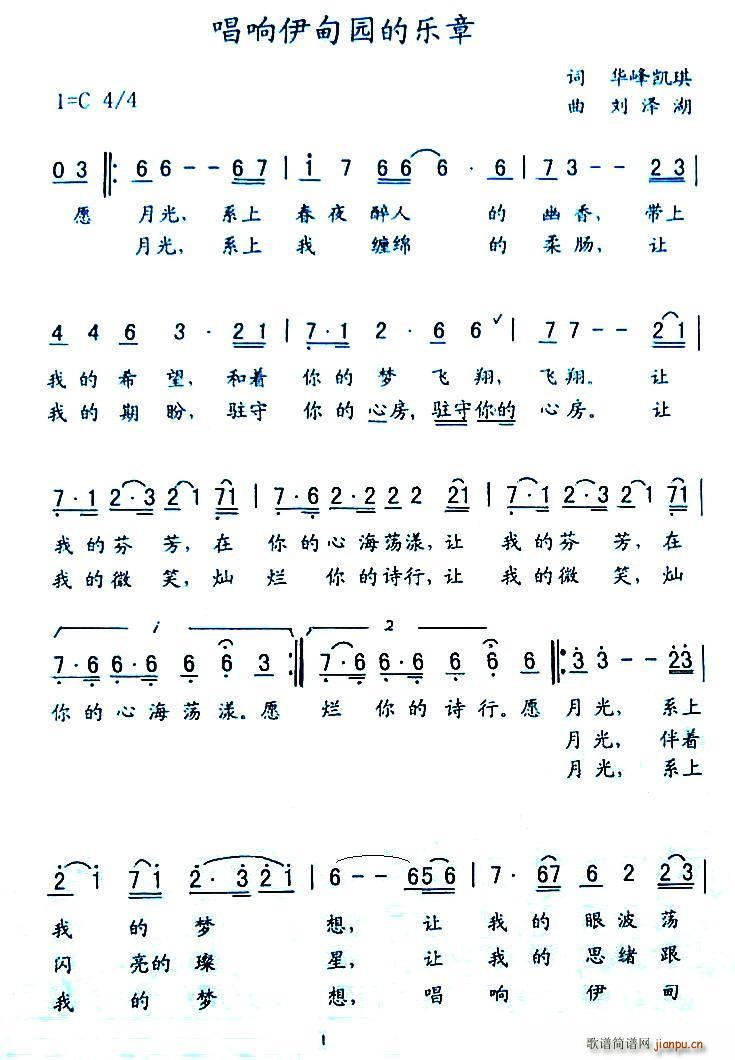 唱响伊甸园的乐章
词 华峰凯琪
1=C 4/4
曲 刘泽湖
0 3 ‖: 6 6 - - 6 7 | i 7 6 6 6 · 6 | 7 3 - - 2 3 |
愿 月光, 系上 春夜 醉人 的 幽香, 带上
月光, 系上 我 缠绵 的 柔肠, 让
4 4 6 3 · 2 1 | 7 · 1 2 · 6 6 | 7 7 - - 2 1 |
我的希望, 和着 你的梦 飞翔, 飞翔。 让
我的期盼, 驻守 你的心房, 驻守你的 心房。 让
7 · 1 2 · 3 2 1 7 1 | 7 · 6 2 · 2 2 2 2 1 | 7 · 1 2 · 3 2 1 7 1 |
我的芬芳, 在 你的心海荡漾, 让 我的芬芳, 在
我的微笑, 灿烂 你的诗行, 让 我的微笑, 灿
1 2
7 · 6 6 · 6 6 6 3 :‖ 7 · 6 6 · 6 6 6 6 ‖: 3 3 - - 2 3
你的心海荡漾。愿 烂你的诗行。愿 月光, 系上
月光, 伴着
月光, 系上
2 i 7 1 2 · 3 2 i | 6 - - 6 5 6 | 7 · 6 7 6 2 2 3 |
我 的 梦 想, 让 我的眼波荡
闪 亮的璨 星, 让 我的思绪跟
我 的 梦 想, 唱 响 伊 甸
1
歌谱简谱网
jianpu.cn